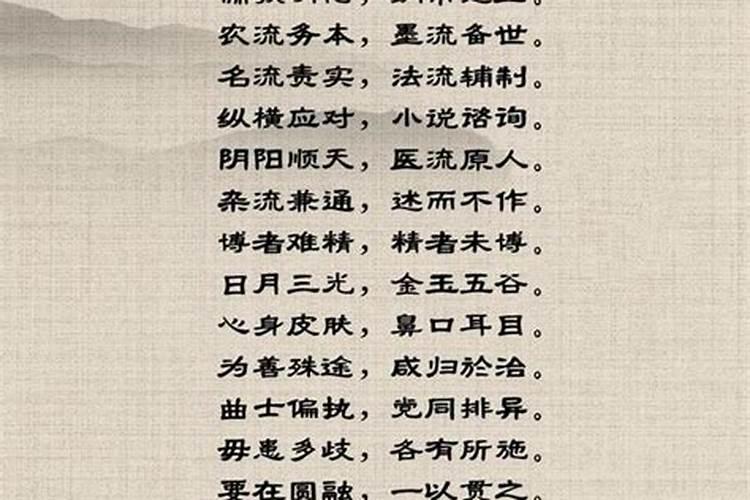 农流务本，墨流备世。
名流责实，法流辅制。
纵横应对，小说谘询。
阴阳顺天，医流原人。
杂流兼通，述而不作。
博者难精，精者未博。
日月三光，金玉五谷。
心身皮肤，鼻口耳目。
为善殊途，咸归於治。
曲士偏执，党同排异。
毋患多歧，各有所施。
要在圆融，一以贯之。